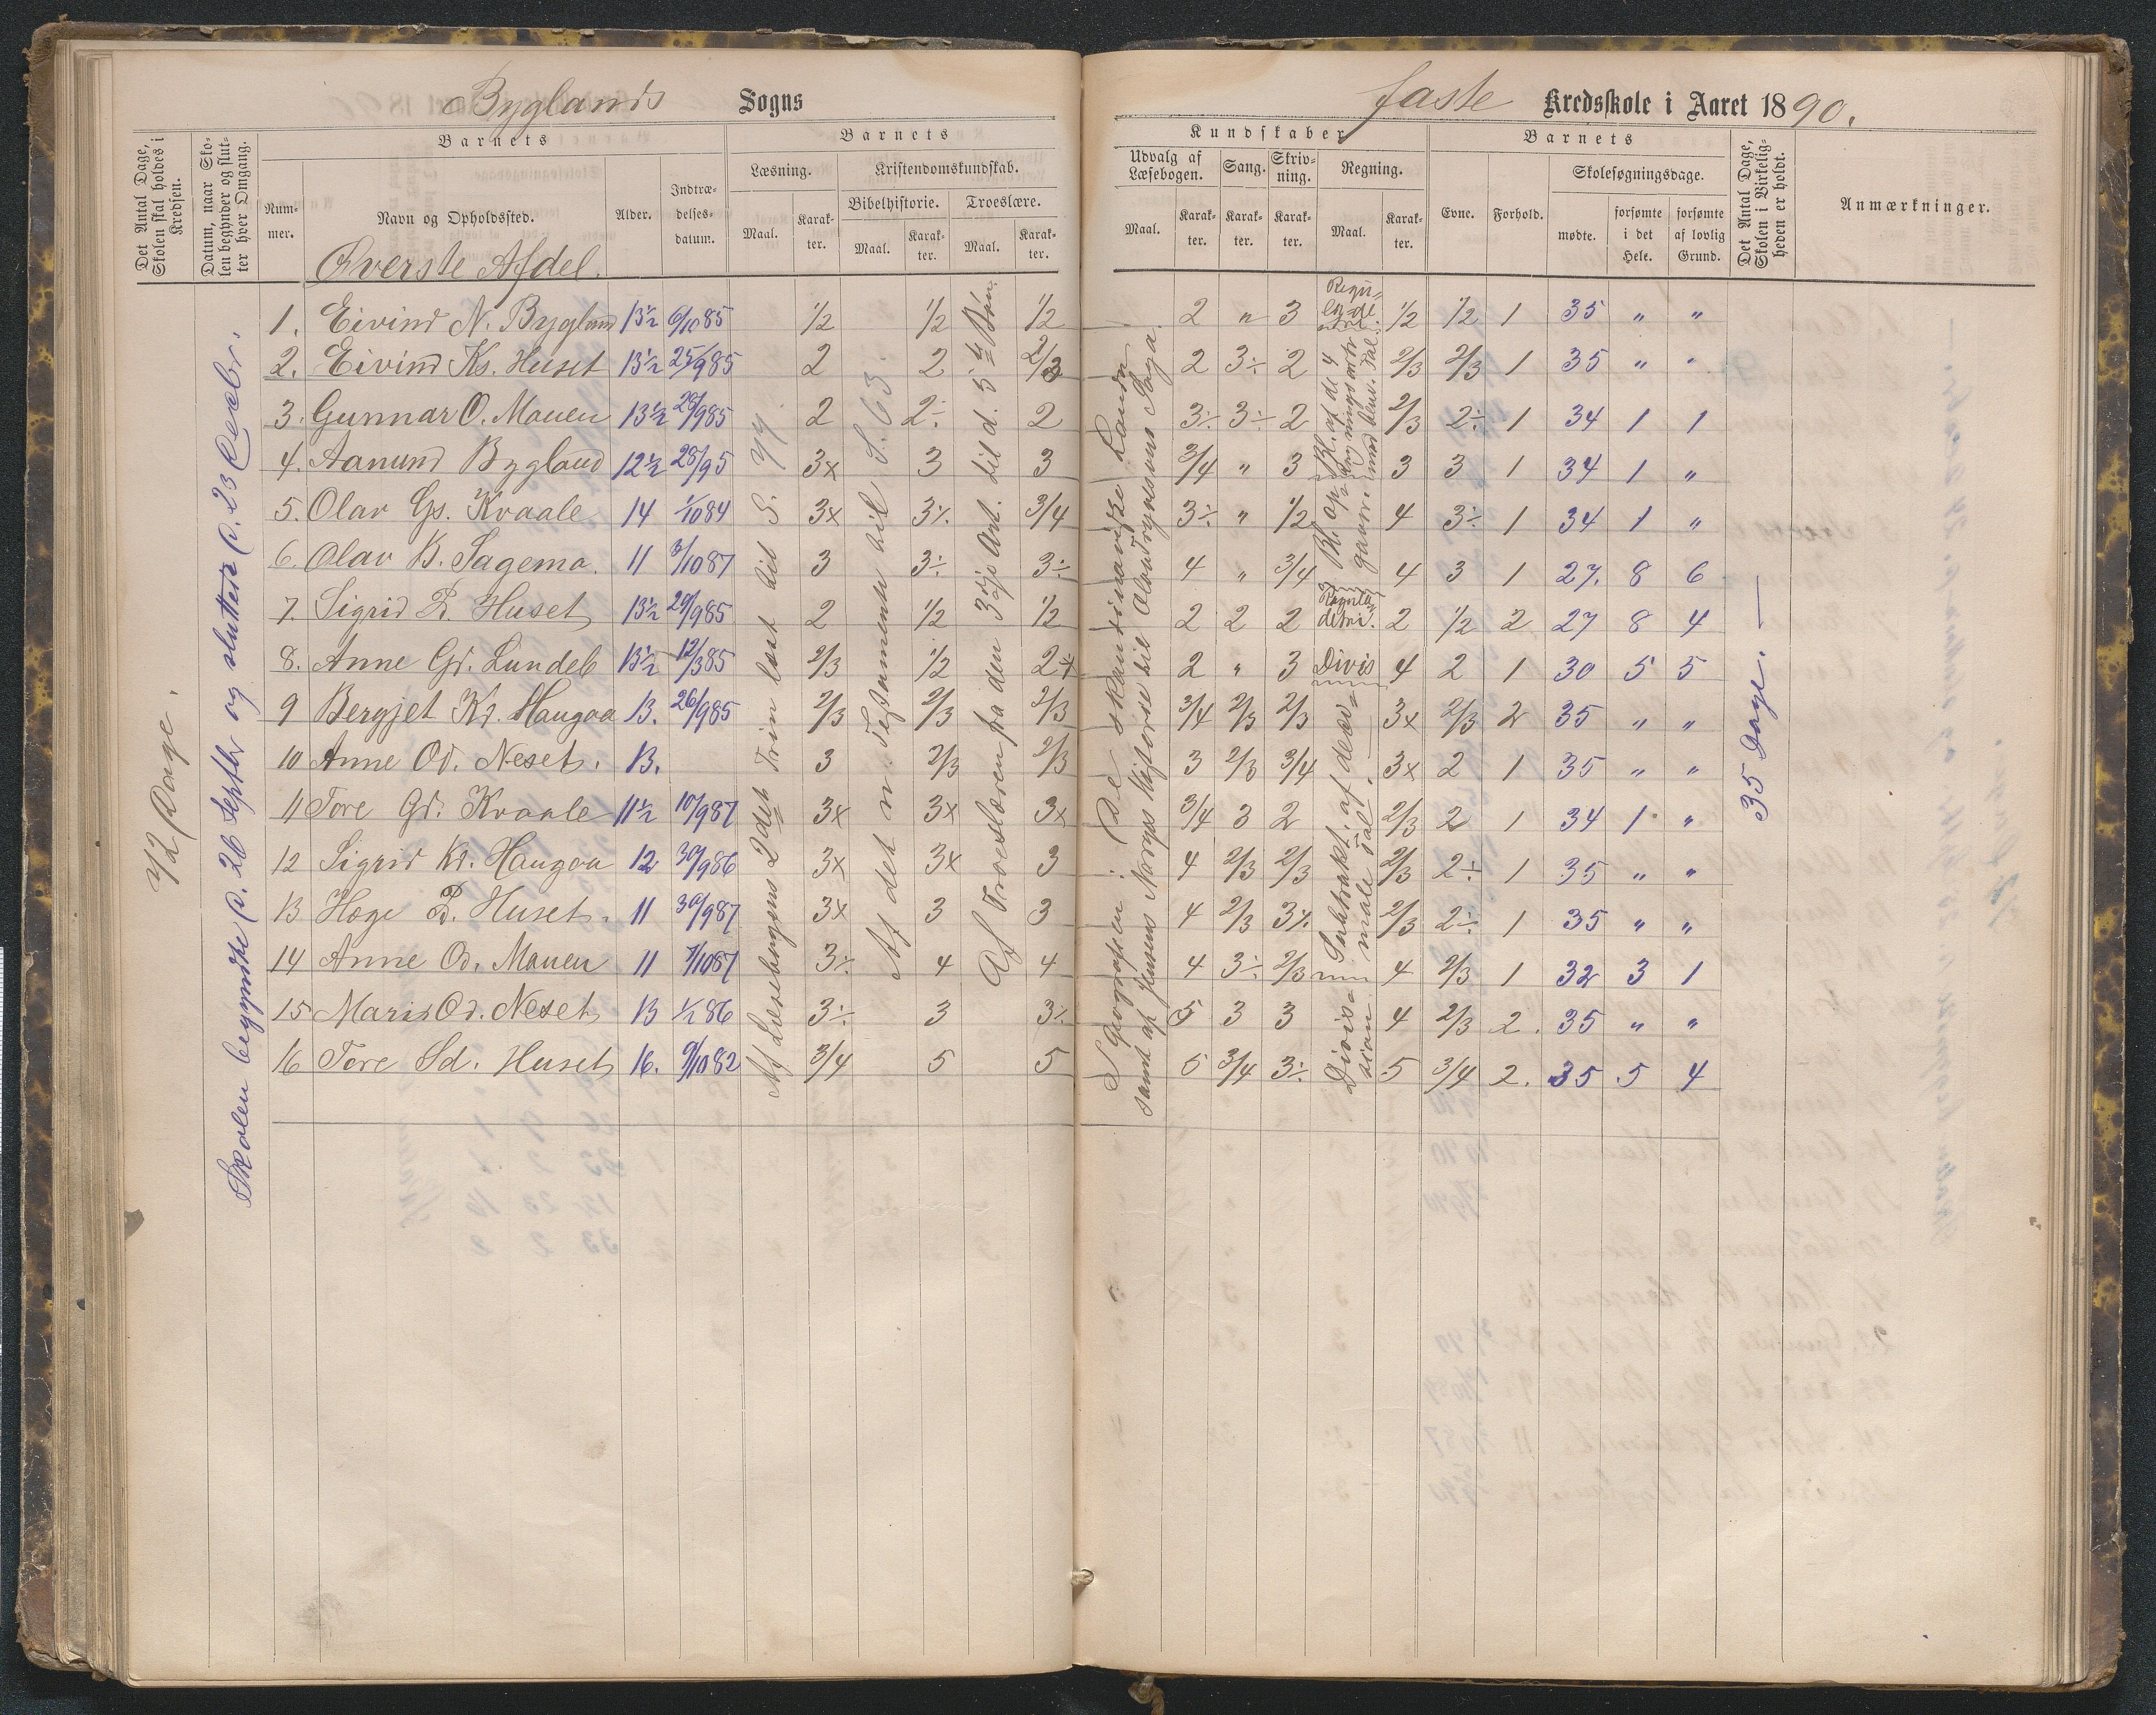 Byglands Sogns faste Kredsskole i Aaret 1890.
Det Antal Dage, Skolen skal holdes i Kredsen.
Datum, naar Skolen begynder og slutter hver Omgang.
Barnets
Nummer.
Navn og Opholdssted.
Alder.
Indtrædelsesdatum.
Barnets
Læsning.
Maal.
Karakter.
Kristendomskundskab.
Bibelhistorie.
Maal.
Karakter.
Troeslære.
Maal.
Karakter.
Kundskaber
Udvalg af Læsebogen.
Maal.
Karakter.
Sang.
Karakter.
Skrivning.
Karakter.
Regning.
Maal.
Karakter.
Barnets
Evne.
Forhold.
Skolesøgningsdage.
mødte.
forsømte i det Hele.
forsømte af lovlig Grund.
Det Antal Dage, Skolen i Virkeligheden er holdt.
Anmærkninger.
Øverste Afdel.
1. Eivind N. Bygland 13½ 6/10 85 1/2 1/2 1/2 2 " 3 1/2 1/2 1 35 " "
2. Eivind Ks. Huset 13½ 25/9 85 2 2 2/3 2 3÷ 2 2/3 2/3 1 35 " "
3. Gunnar O. Mauen 13½ 29/9 85 2 2÷ 2 3÷ 3÷ 2 2/3 2÷ 1 34 1 1
4. Aanund Bygland 12½ 28/9 5 3x 3 3 3/4 " 3 3 3 1 34 1 "
5. Olav Gs. Kvaale 14 1/10 84 3x 3÷ 3/4 3÷ " 1/2 4 3÷ 1 34 1 "
6. Olav B. Sagemo. 11 3/10 87 3 3÷ 3÷ 4 " 3/4 4 3 1 27. 8 6
7. Sigrid P. Huset 13½ 29/9 85 2 1/2 1/2 2 2 2 2 1/2 2 27 8 4
8. Anne Gd. Lundeb 13½ 12/3 85 2/3 1/2 2x 2 " 3 4 2 1 30 5 5
9 Bergjet Kd. Haugaa 13. 26/9 85 2/3 2/3 2/3 3/4 2/3 2/3 3x 2/3 2 35 " "
10 Anne Od. Neset. 13. 3 2/3 2/3 3 2/3 3/4 3x 2 1 35 " "
11 Tore Gd. Kvaale 11½ 10/9 87 3x 3x 3x 3/4 3 2 2/3 2 1 34 1 "
12 Sigrid Kd. Haugaa 12 30/9 86 3x 3x 3 4 2/3 2/3 2/3 2÷ 1 35 " "
13 Hæge P. Huset. 11 30/9 87 3x 3 3 4 2/3 3÷ 2/3 2÷ 1 35 " "
14 Anne Od. Mauen 11 7/10 87 3÷ 4 4 4 3÷ 2/3 4 2/3 1 32 3 1
15 Maris Od. Neset 13 1/1 86 3÷ 3 3÷ 5 3 3 4 2/3 2. 35 " "
16 Tore Sd. Huset 16. 9/10 82 3/4 5 5 5 3/4 3÷ 5 3/4 2. 35 5 4
72 Dage.
Skolen begyndte d. 26 Septbr og sluttede d. 23 Decbr.
Af Læsebogens 2det Trin læst til S. 77.
Af det n. Testamente til S. 63.
Af Troeslæren fra den 3die Art. til d. 5te Bøn.
I Geografien: De skandinaviske Lande
samt af Jensens Norges Historie til Olav Trygvessøns Saga.
Divis
Subtrakt. af benævnte Tal.
Division
35 Dage. —